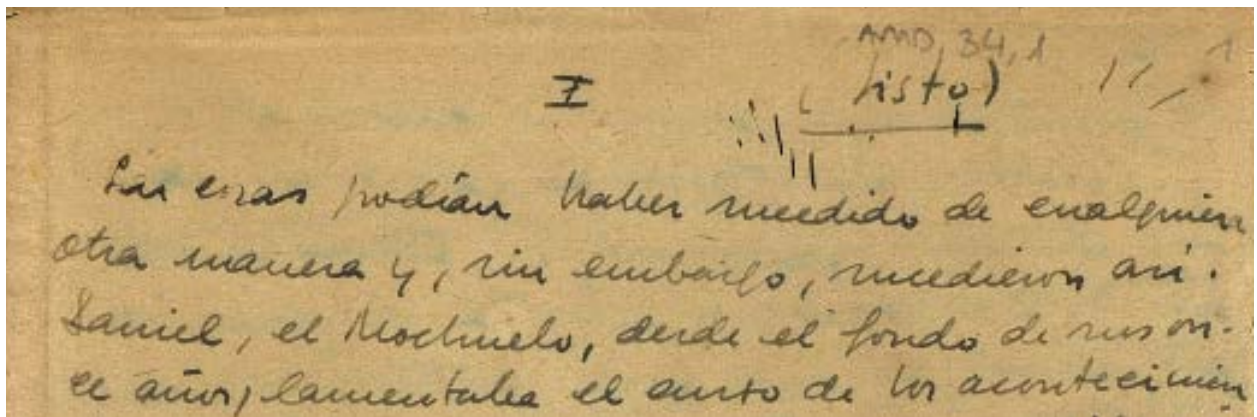 AMD, 34, 1
1
I
(Listo)
Las cosas podían haber sucedido de cualquier
otra manera y, sin embargo, sucedieron así.
Daniel, el Mochuelo, desde el fondo de sus on-
ce años, lamentaba el curso de los acontecimien